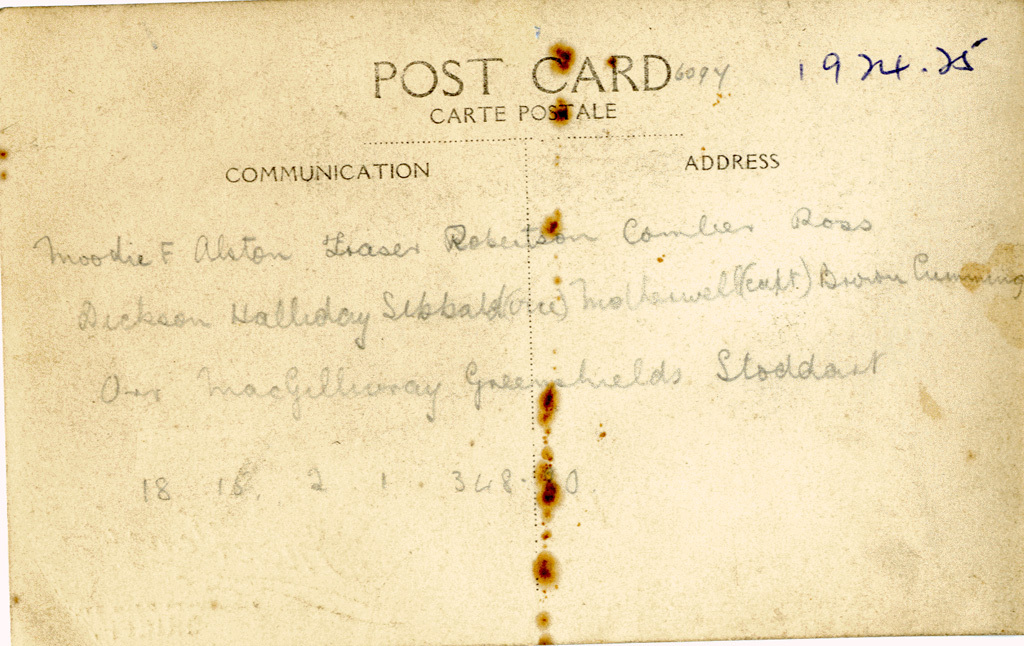 POST CARD 6094 1924.25
CARTE POSTALE
COMMUNICATION
ADDRESS
Moodie F Alston Fraser Robertson Comber Ross
Dickson Halliday Sibbald (vice) Motherwell (capt.) Brown Cumming
Orr MacGillivray Greenshields Stoddart
18 15. 2 1 348. 0